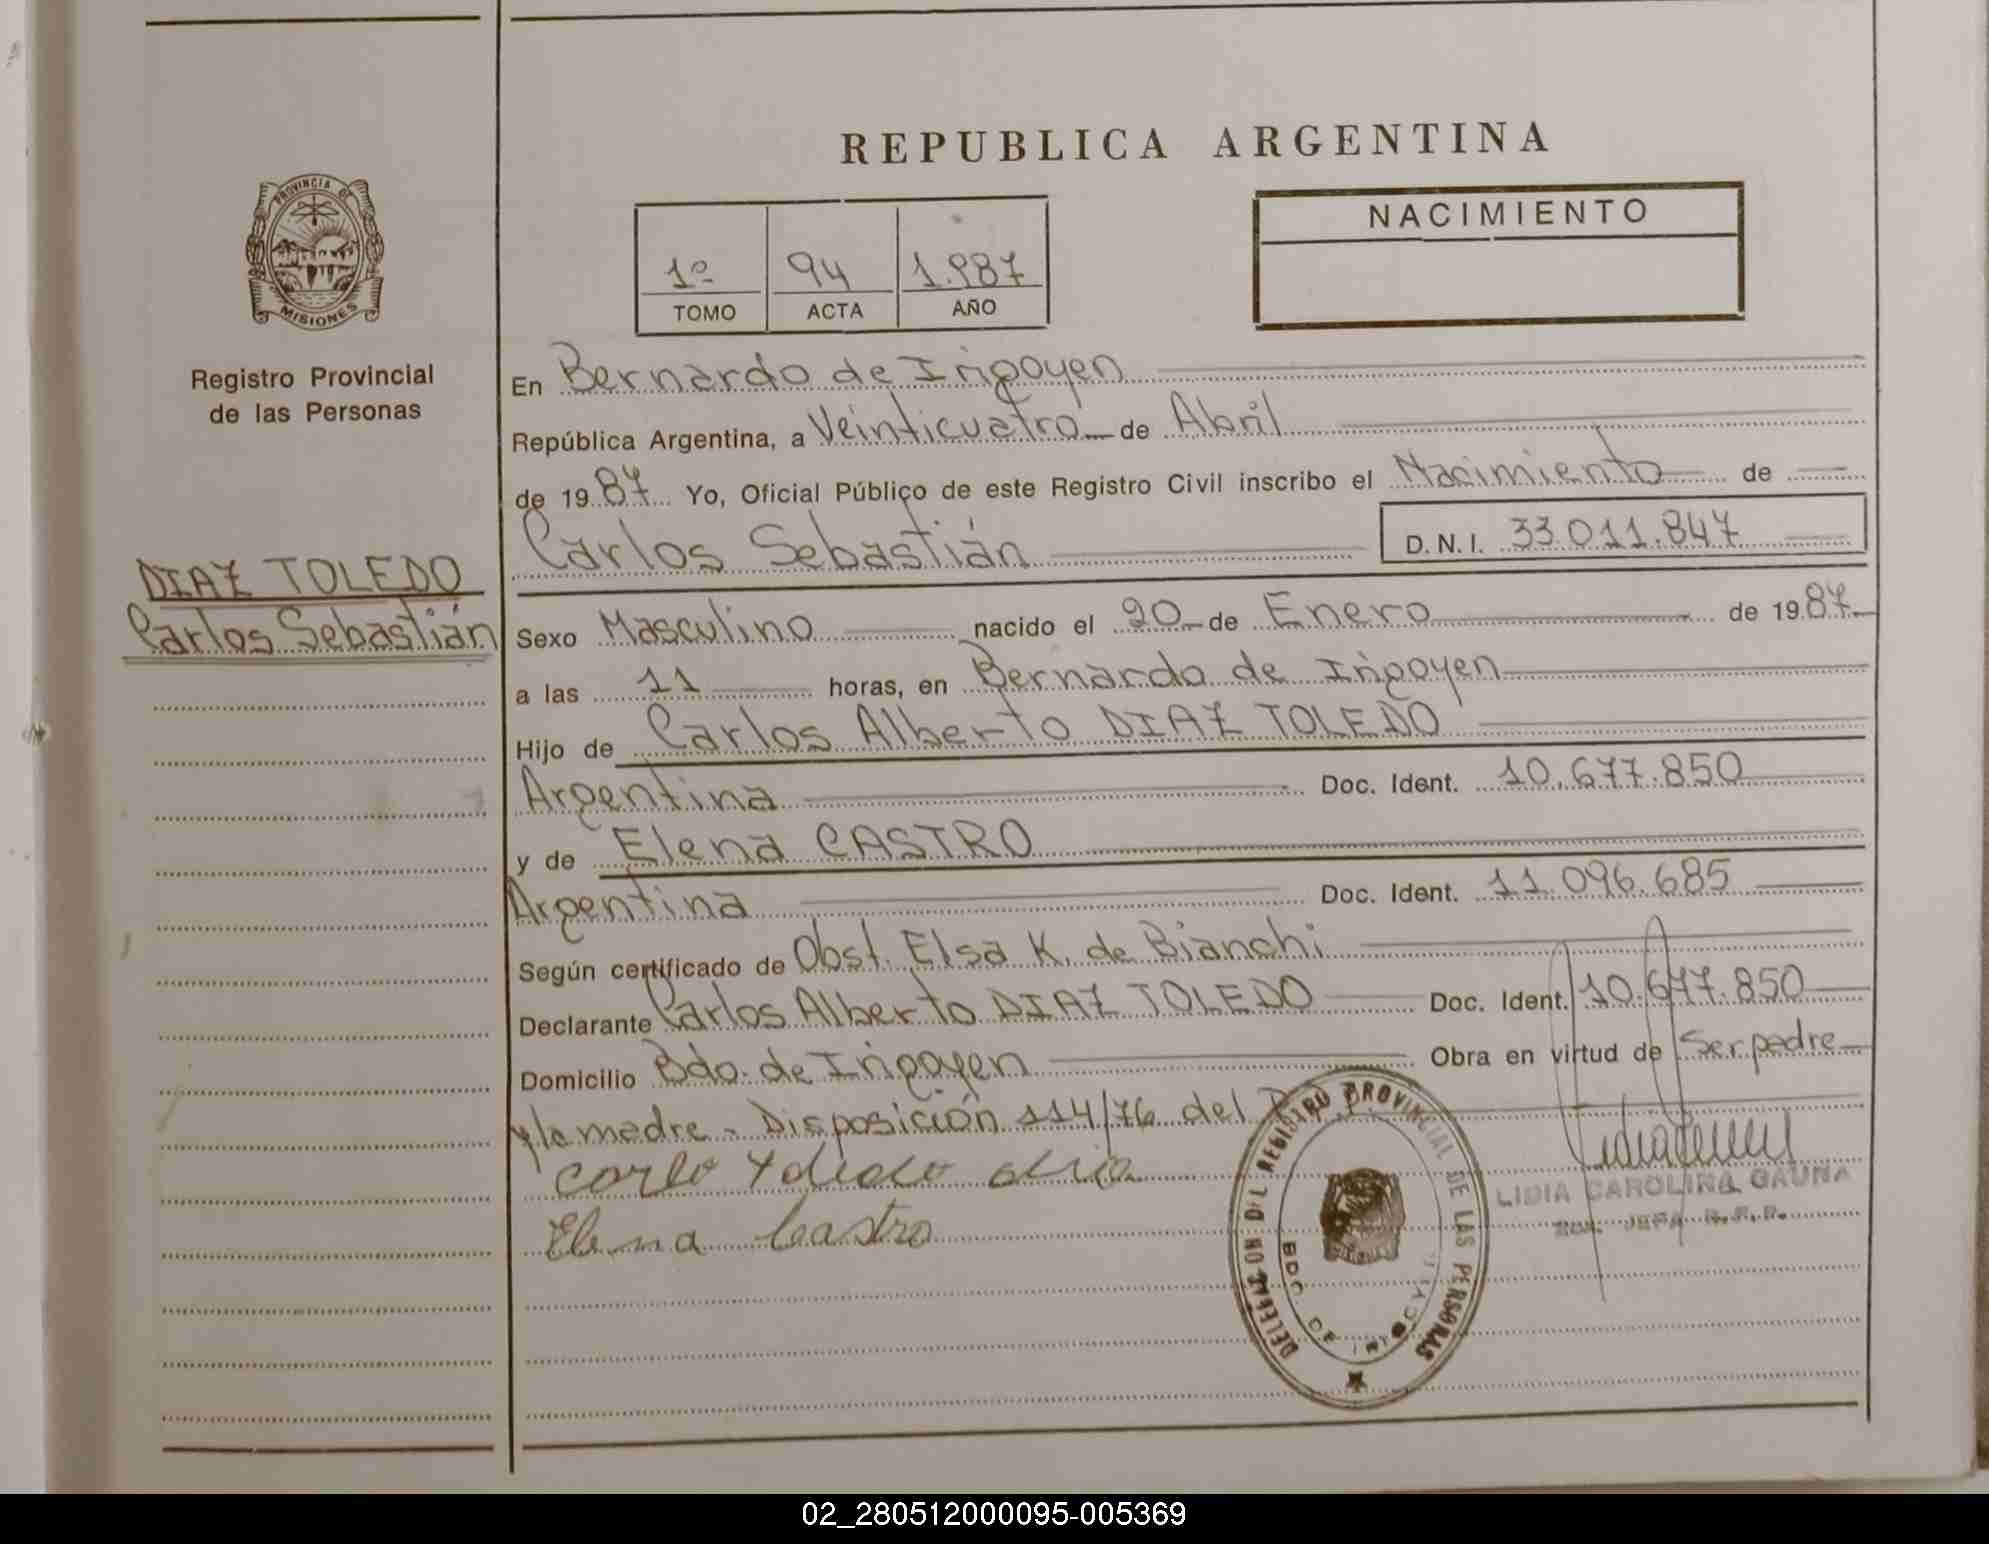 REPUBLICA ARGENTINA
PROVINCIA DE
MISIONES
Registro Provincial
de las Personas
DIAZ TOLEDO
Carlos Sebastián
1º 94 1.987
TOMO ACTA AÑO
NACIMIENTO
En Bernardo de Irigoyen
República Argentina, a Veinticuatro de Abril
de 1987 Yo, Oficial Público de este Registro Civil inscribo el Nacimiento de
Carlos Sebastián D.N.I. 33.011.847
Sexo Masculino nacido el 20 de Enero de 1987
a las 11 horas, en Bernardo de Irigoyen
Hijo de Carlos Alberto DIAZ TOLEDO
Argentina Doc. Ident. 10.677.850
y de Elena CASTRO
Argentina Doc. Ident. 11.096.685
Según certificado de Obst. Elsa K. de Bianchi
Declarante Carlos Alberto DIAZ TOLEDO Doc. Ident. 10.677.850
Domicilio Bdo. de Irigoyen Obra en virtud de Ser padre
y la madre - Disposición 114/76 del
Elena Castro
DELEGACION DEL REGISTRO PROVINCIAL DE LAS PERSONAS
BDO. DE IRIGOYEN
LIDIA CAROLINA GAUNA
JEFA R.P.P.
02_280512000095-005369